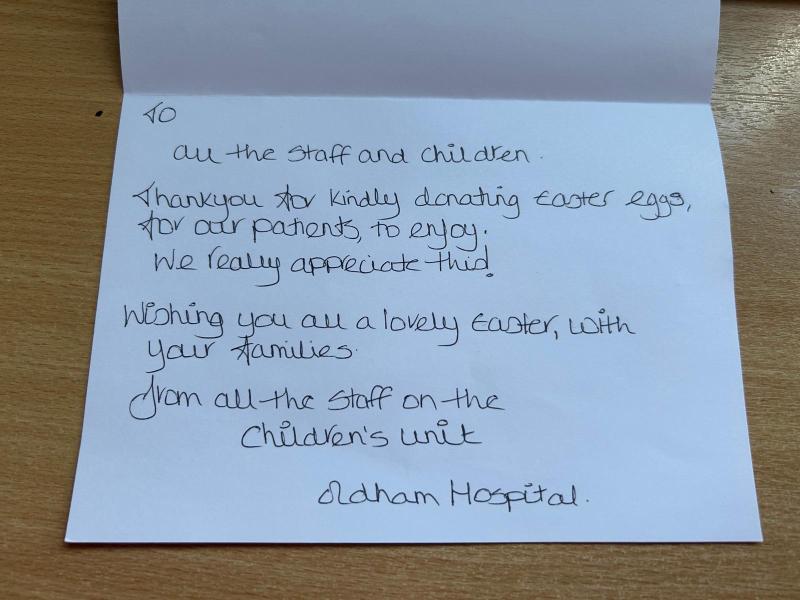 To
all the staff and children.
Thankyou for kindly donating Easter eggs,
for our patients, to enjoy.
We really appreciate this!
Wishing you all a lovely Easter, with
your families.
from all the staff on the
Children's unit
Oldham Hospital.